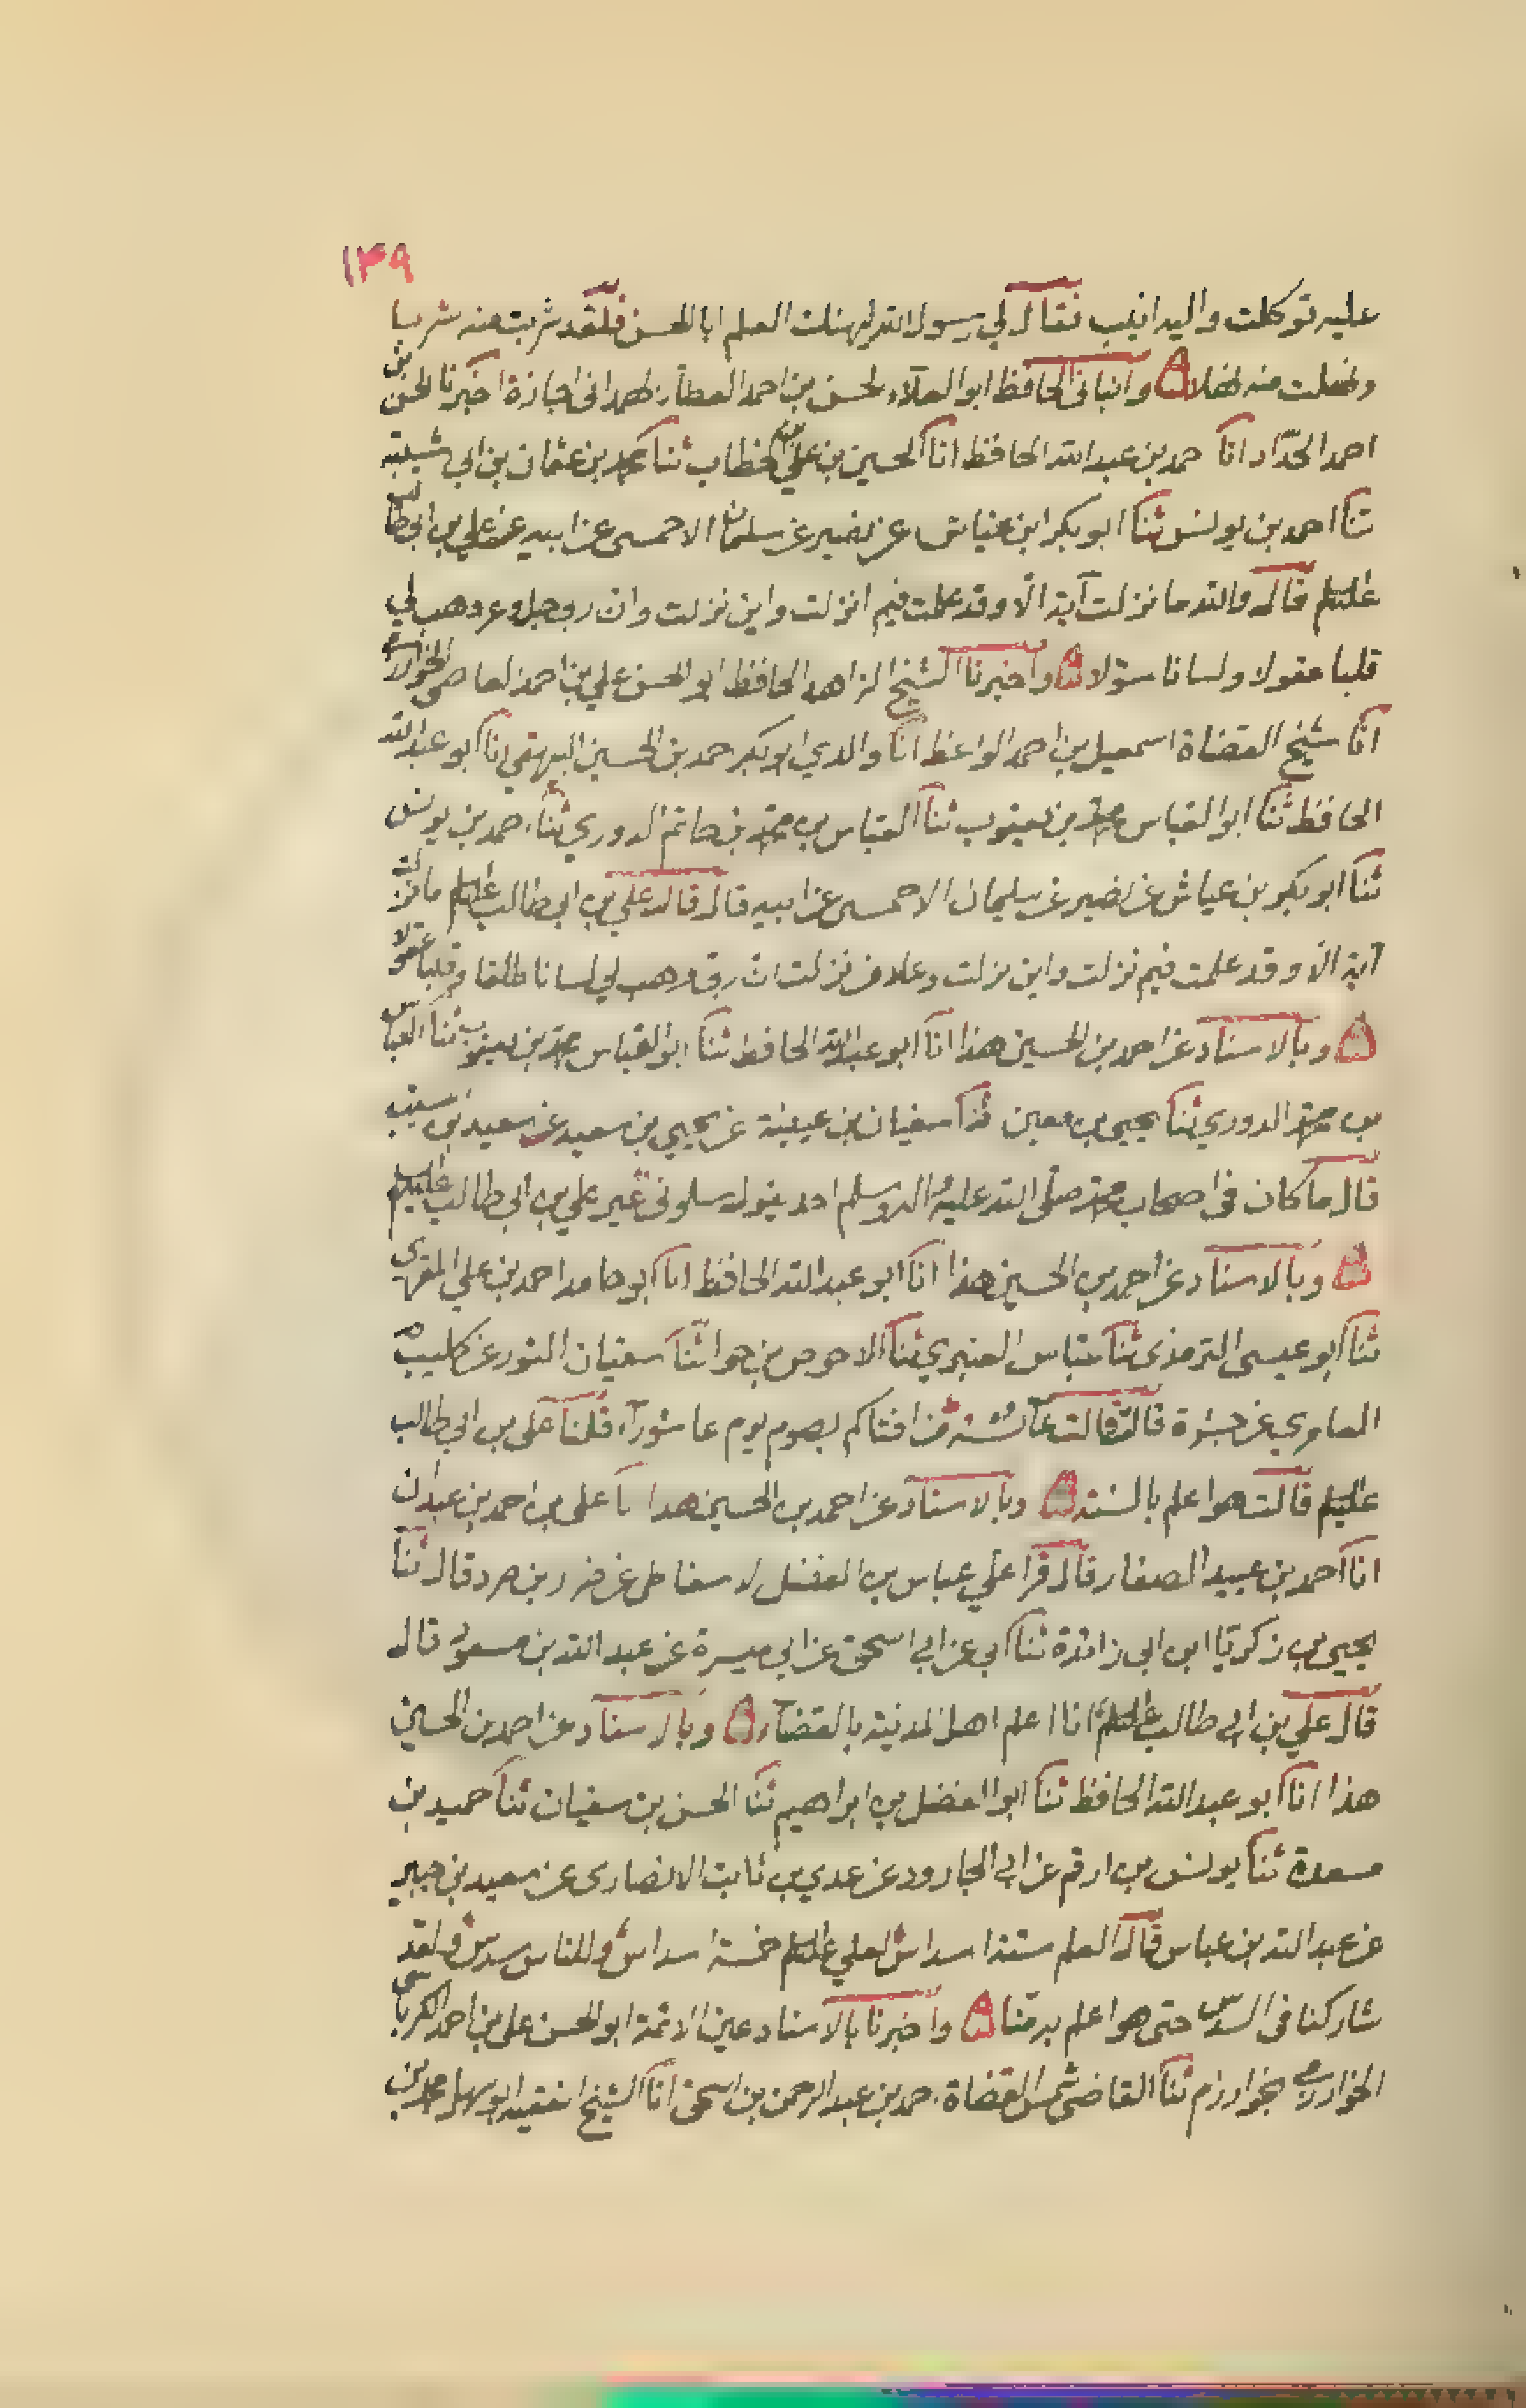 ١٣٩
عليه توكلت واليه انيب فقال لي رسول الله ليهنك العلم ابا الحسن فلقد شربت منه شربا
ونهلت منه نهلا وانبانى الحافظ ابو العلاء الحسن بن احمد العطار الهمدانى اجازة اخبرنا الحسن بن
احمد الحدّاد انا احمد بن عبد الله الحافظ انا الحسين بن علي بن خطاب ثنا محمد بن عثمان بن ابي شيبة
ثنا احمد بن يونس ثنا ابو بكر ابن عياش عن نصير عن سلمان الاحمسى عن ابيه عن علي بن ابي طالب
عليه السلم قال والله ما نزلت آية الّا وقد علمت فيم انزلت واين نزلت وان ربي جل وعز وهب لي
قلبا عقولا ولسانا سؤلا واخبرنا الشيخ الزاهد الحافظ ابو الحسن علي بن احمد العاصمى الخوارزمى
انا شيخ القضاة اسمعيل بن احمد الواعظ انا والدي ابو بكر احمد بن الحسين البيهقي انا ابو عبد الله
الحافظ ثنا ابو العباس محمد بن يعقوب ثنا العباس بن محمد بن حاتم الدوري ثنا احمد بن يونس
ثنا ابو بكر بن عياش عن نصير عن سليمان الاحمسى عن ابيه قال قال علي بن ابي طالب عليه السلم ما نزلت
آية الّا وقد علمت فيم نزلت واين نزلت وعلى من نزلت ان ربى وهب لي لسانا طلقا وقلبا عقولا
وبالاسناد عن احمد بن الحسين هذا انا ابو عبد الله الحافظ ثنا ابو العباس محمد بن يعقوب ثنا العباس
بن محمد الدوري ثنا يحيى بن معين ثنا سفيان بن عيينة عن يحيى بن سعيد عن سعيد بن مسيب
قال ما كان فى اصحاب محمد صلّى الله عليه واله وسلم احد يقول سلونى غير علي بن ابي طالب عليه السلم
وبالاسناد عن احمد بن الحسين هذا انا ابو عبد الله الحافظ انا ابو حامد احمد بن علي المقرى
ثنا ابو عيسى الترمذى ثنا عباس العنبري ثنا الاحوص بن جواب ثنا سفيان الثور عن كليب
العامري عن جسرة قالت قالت عائشة من افتاكم بصوم يوم عاشوراء قلنا علي بن ابي طالب
عليه السلم قالت هو اعلم بالسنة وبالاسناد عن احمد بن الحسين هذا انا على بن احمد بن عبدان
انا احمد بن عبيد الصفار قال قرا علي عباس بن الفضل الاسفاطى عن ضرار بن صرد قال ثنا
يحيى بن زكريّا ابن ابى زائدة ثنا ابي عن ابي اسحق عن ابي ميسرة عن عبد الله بن مسعود قال
قال علي بن ابي طالب عليه السلم انا اعلم اهل المدينة بالقضاء وبالاسناد عن احمد بن الحسين
هذا انا ابو عبد الله الحافظ ثنا ابو الفضل بن ابراهيم ثنا الحسن بن سفيان ثنا حميد بن
مسعدة ثنا يونس بن ارقم عن ابي الجارود عن عدي بن ثابت الانصارى عن سعيد بن جبير
عن عبد الله بن عباس قال العلم ستة اسداس لعلي عليه السلم خمسة اسداس وللناس سدس ولقد
شاركنا فى السدس حتى هو اعلم به منا واخبرنا بالاسناد عين الائمة ابو الحسن على بن احمد الكرباسى
الخوارزمى بخوارزم ثنا القاضى شمس القضاة احمد بن عبد الرحمن بن اسحق انا الشيخ الفقيه ابو سهل محمد بن